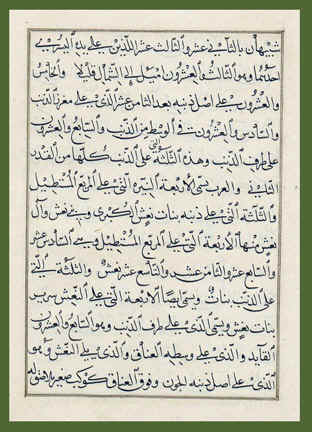 شبيهان بالتاسع عشر والثالث عشر اللذين على يده اليسرى
احدهما وهو الثالث والعشرون اميل الى الشمال قليلا والخامس
والعشرون على اصل ذنبه بعد الثامن عشر الذى على مغرز الذنب
والسادس والعشرون فى الوسط من الذنب والسابع والعشرون
على طرف الذنب وهذه الثلثة التى على الذنب كلها من القدر
الثانى والعرب تسمى الاربعة النيرة التى على المربع المستطيل
والثلاثة التى على ذنبه بنات نعش الكبرى وبنى نعش وآل
نعش منها الاربعة التى على المربع المستطيل وهى السادس عشر
والسابع عشر والثامن عشر والتاسع عشر نعش والثلثة التى
على الذنب بنات ويسمى ايضا الاربعة التى على النعش سرير
بنات نعش ويسمى الذى على طرف الذنب وهو السابع والعشرون
القايد والذى على وسطه العناق والذى يلى النعش وهو
الذى على اصل ذنبه الجون وفوق العناق كوكب صغير ملاصق له